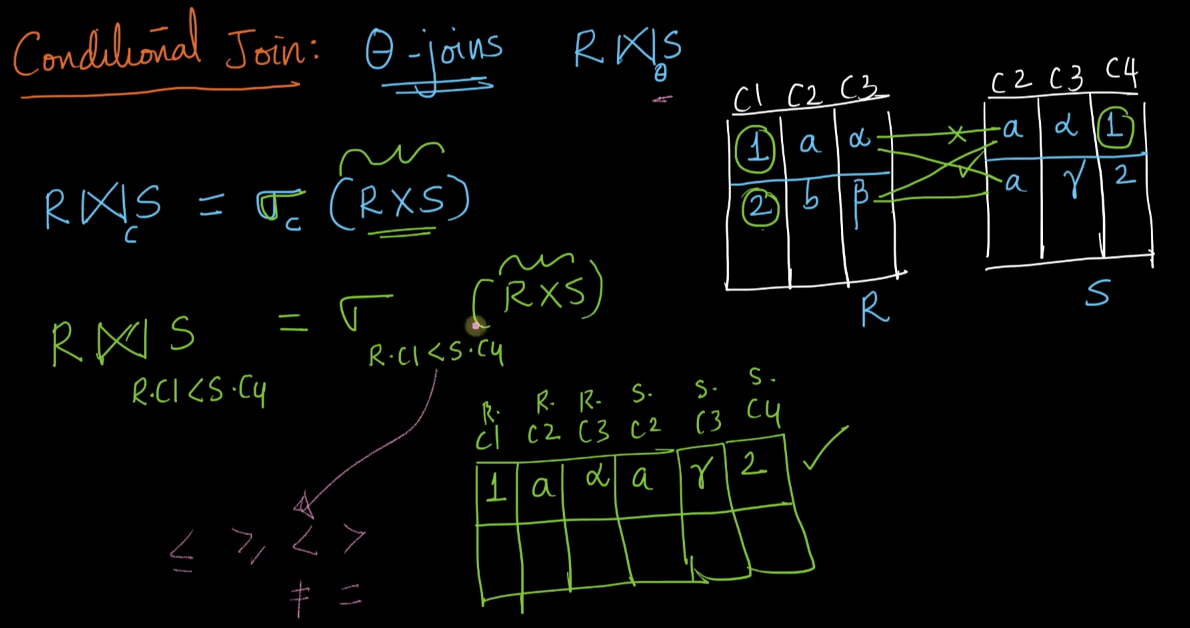 Conditional Join: θ-joins R⋈θ S
<
R⋈c S = σc (R×S)
R⋈ S = σ (R×S)
R.C1<S.C4 R.C1<S.C4
≤ ≥, < >
≠ =
C1 C2 C3
1 a α
2 b β
R
C2 C3 C4
a α 1
a γ 2
S
R. R. R. S. S. S.
C1 C2 C3 C2 C3 C4
1 a α a γ 2